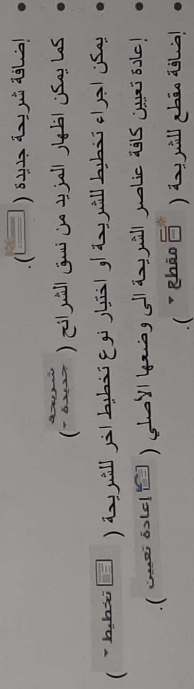 • إضافة شريحة جديدة ( ).
• كما يمكن اظهار المزيد من نسق الشرائح ( شريحة جديدة ).
• يمكن اجراء تخطيط للشريحة او اختيار نوع تخطيط اخر للشريحة ( تخطيط )
• إعادة تعيين كافة عناصر الشريحة الى وضعها الأصلي ( إعادة تعيين ).
• إضافة مقطع للشريحة ( مقطع ).